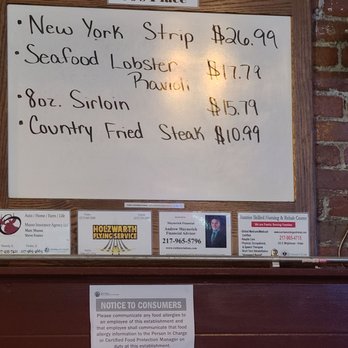 Place
• New York Strip $26.99
• Seafood Lobster Ravioli $17.79
• 8oz. Sirloin $15.79
• Country Fried Steak $10.99
Auto / Home / Farm / Life
HOLZWARTH
FLYING SERVICE
Andrew
Financial Advisor
217-965-5796
Skilled Nursing & Rehab Center
217-965-4715
NOTICE TO CONSUMERS
Please communicate any food allergies to
an employee of this establishment and
that employee shall communicate that food
allergy information to the Person In Charge
or Certified Food Protection Manager on
duty at this establishment.